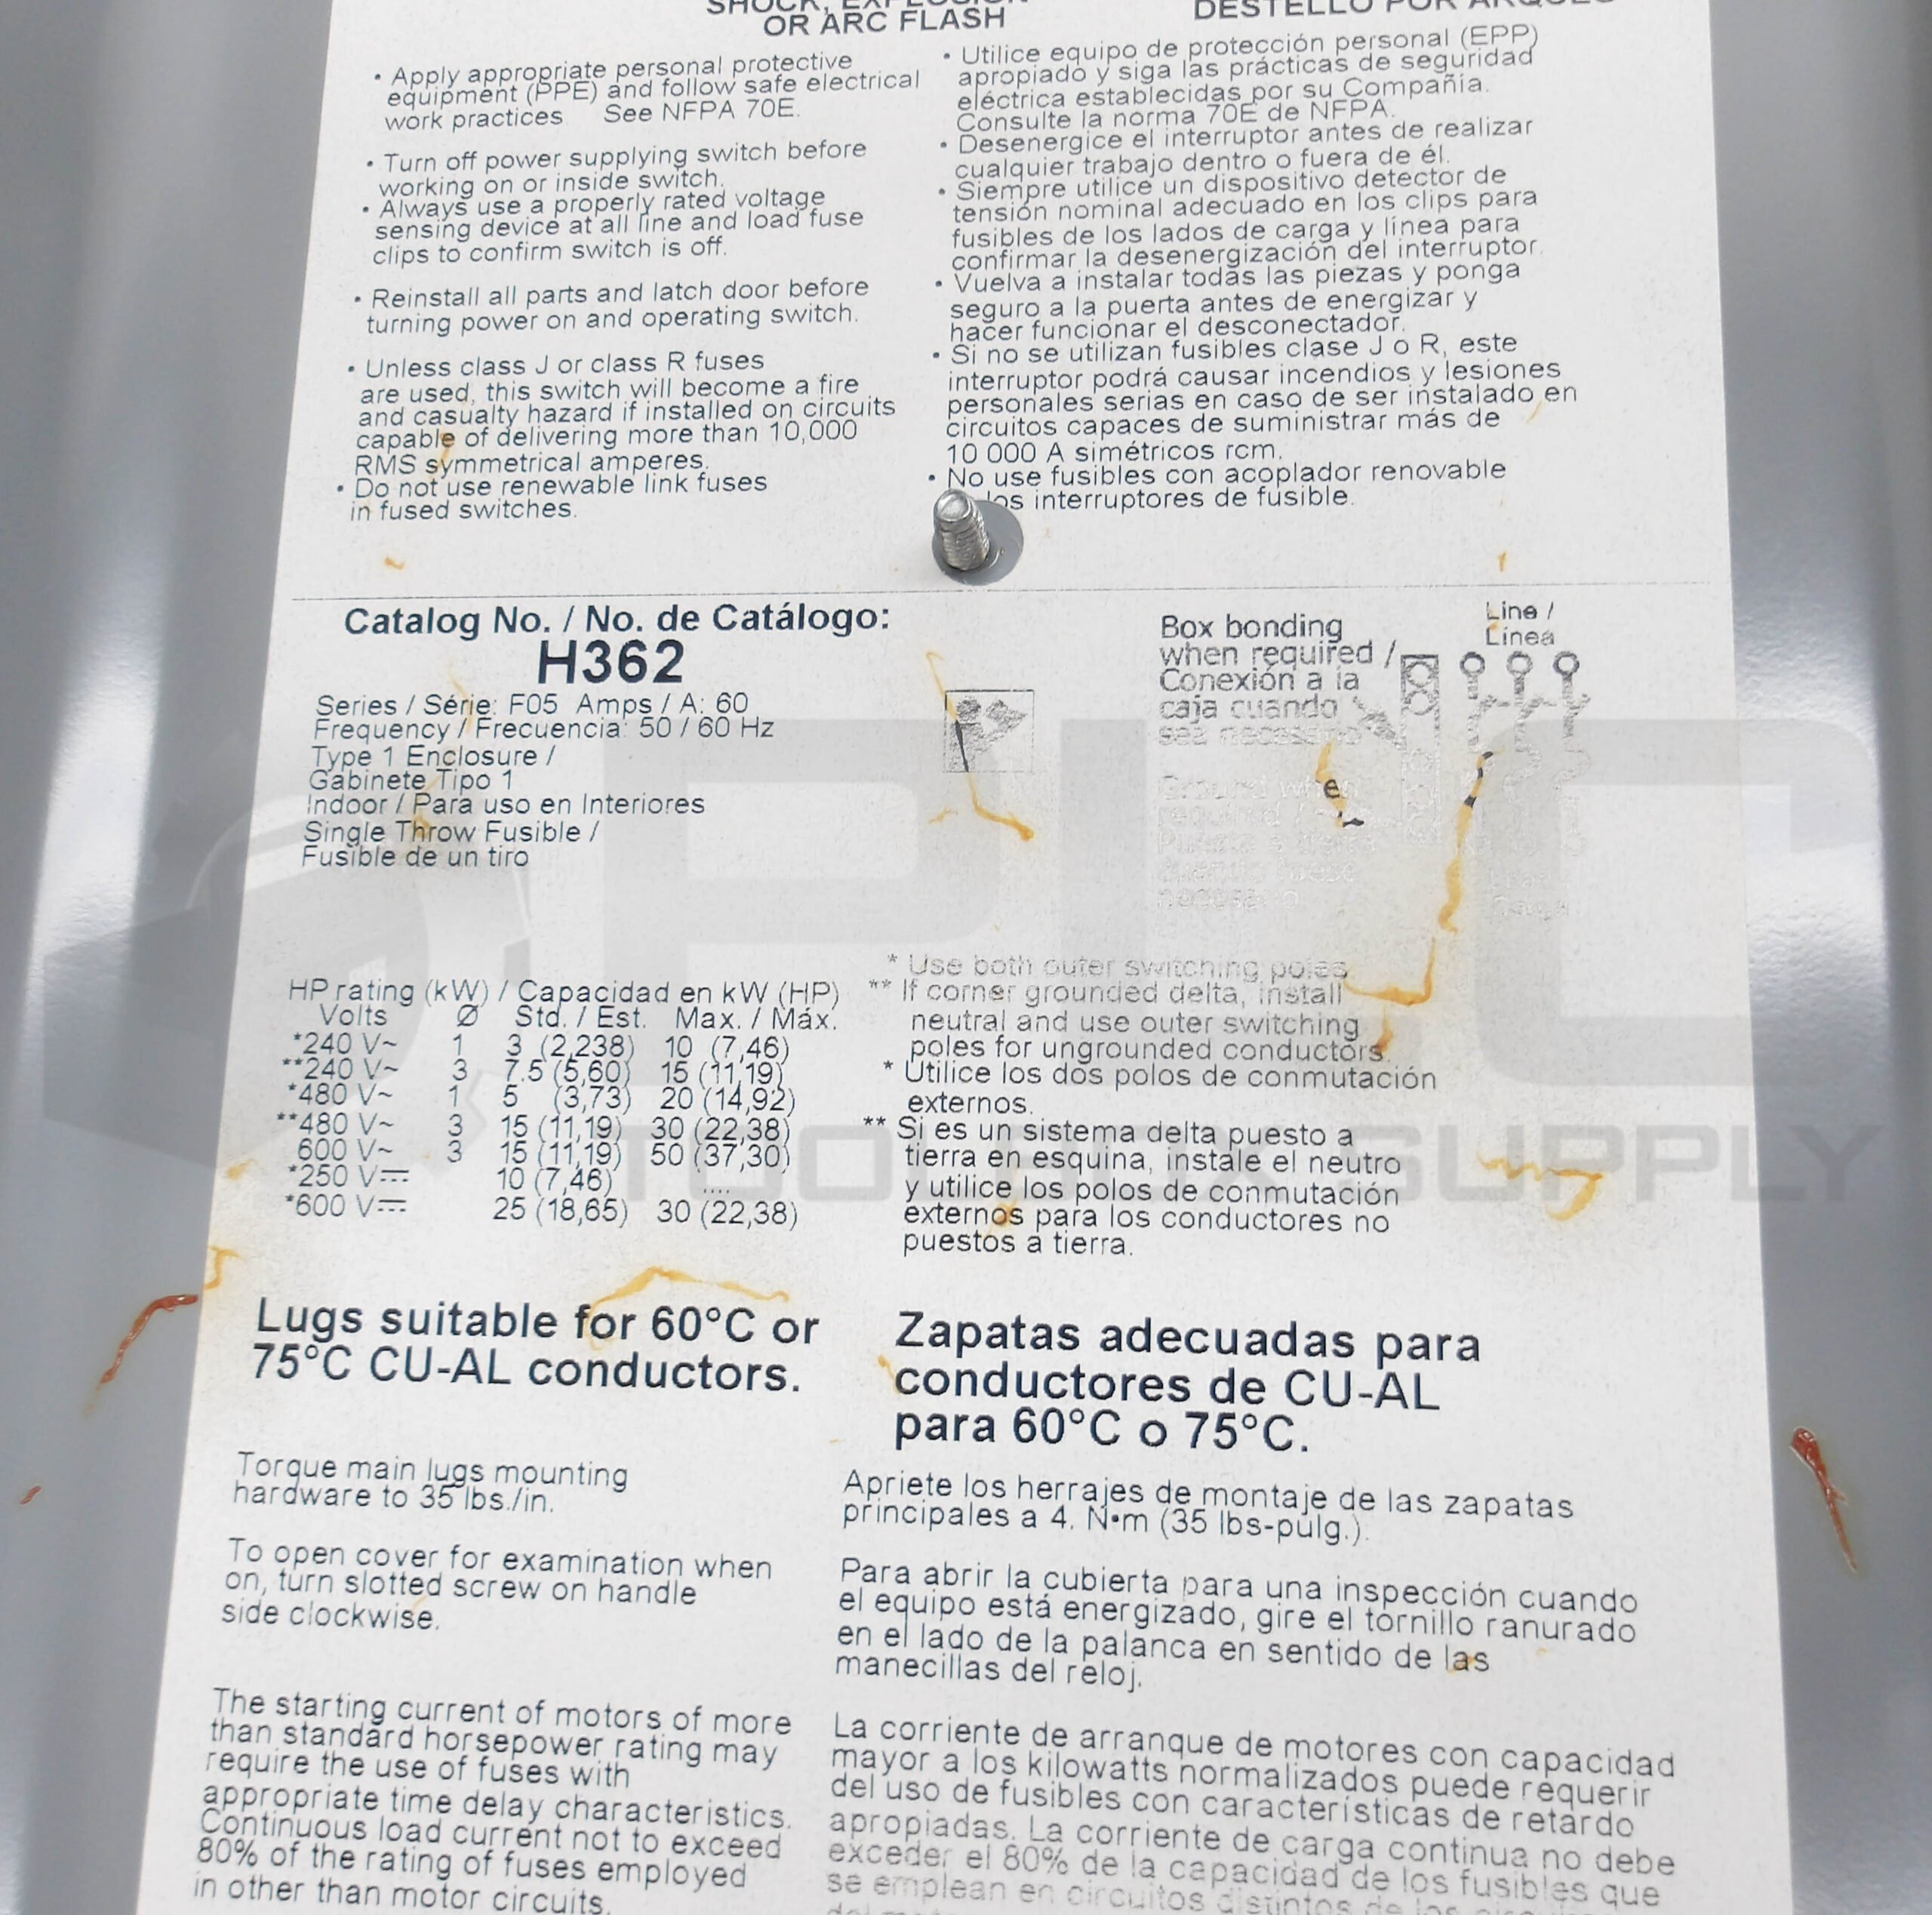 SHOCK, EXPLOSION
OR ARC FLASH
• Apply appropriate personal protective
equipment (PPE) and follow safe electrical
work practices See NFPA 70E.
• Turn off power supplying switch before
working on or inside switch.
• Always use a properly rated voltage
sensing device at all line and load fuse
clips to confirm switch is off.
• Reinstall all parts and latch door before
turning power on and operating switch.
• Unless class J or class R fuses
are used, this switch will become a fire
and casualty hazard if installed on circuits
capable of delivering more than 10,000
RMS symmetrical amperes.
• Do not use renewable link fuses
in fused switches.
DESTELLO POR ARQUEO
• Utilice equipo de protección personal (EPP)
apropiado y siga las prácticas de seguridad
eléctrica establecidas por su Compañía.
Consulte la norma 70E de NFPA.
• Desenergice el interruptor antes de realizar
cualquier trabajo dentro o fuera de él.
• Siempre utilice un dispositivo detector de
tensión nominal adecuado en los clips para
fusibles de los lados de carga y línea para
confirmar la desenergización del interruptor.
• Vuelva a instalar todas las piezas y ponga
seguro a la puerta antes de energizar y
hacer funcionar el desconectador.
• Si no se utilizan fusibles clase J o R, este
interruptor podrá causar incendios y lesiones
personales serias en caso de ser instalado en
circuitos capaces de suministrar más de
10 000 A simétricos rcm.
• No use fusibles con acoplador renovable
los interruptores de fusible.
Catalog No. / No. de Catálogo:
H362
Series / Série: F05 Amps / A: 60
Frequency / Frecuencia: 50 / 60 Hz
Type 1 Enclosure /
Gabinete Tipo 1
Indoor / Para uso en Interiores
Single Throw Fusible /
Fusible de un tiro
Box bonding
when required /
Conexión a la
caja cuando
sea necesario
Line /
Línea
Ground when
required /
necesario
HP rating (kW) / Capacidad en kW (HP)
Volts Ø Std. / Est. Max. / Máx.
*240 V~ 1 3 (2,238) 10 (7,46)
**240 V~ 3 7.5 (5,60) 15 (11,19)
*480 V~ 1 5 (3,73) 20 (14,92)
**480 V~ 3 15 (11,19) 30 (22,38)
600 V~ 3 15 (11,19) 50 (37,30)
*250 V⎓ 10 (7,46) ....
*600 V⎓ 25 (18,65) 30 (22,38)
* Use both outer switching poles
** If corner grounded delta, install
neutral and use outer switching
poles for ungrounded conductors.
* Utilice los dos polos de conmutación
externos.
** Si es un sistema delta puesto a
tierra en esquina, instale el neutro
y utilice los polos de conmutación
externos para los conductores no
puestos a tierra.
PLC
TOOL MX SUPPLY
Lugs suitable for 60°C or
75°C CU-AL conductors.
Zapatas adecuadas para
conductores de CU-AL
para 60°C o 75°C.
Torque main lugs mounting
hardware to 35 lbs./in.
To open cover for examination when
on, turn slotted screw on handle
side clockwise.
The starting current of motors of more
than standard horsepower rating may
require the use of fuses with
appropriate time delay characteristics.
Continuous load current not to exceed
80% of the rating of fuses employed
in other than motor circuits.
Apriete los herrajes de montaje de las zapatas
principales a 4. N•m (35 lbs-pulg.).
Para abrir la cubierta para una inspección cuando
el equipo está energizado, gire el tornillo ranurado
en el lado de la palanca en sentido de las
manecillas del reloj.
La corriente de arranque de motores con capacidad
mayor a los kilowatts normalizados puede requerir
del uso de fusibles con características de retardo
apropiadas. La corriente de carga continua no debe
exceder el 80% de la capacidad de los fusibles que
se emplean en circuitos distintos de los